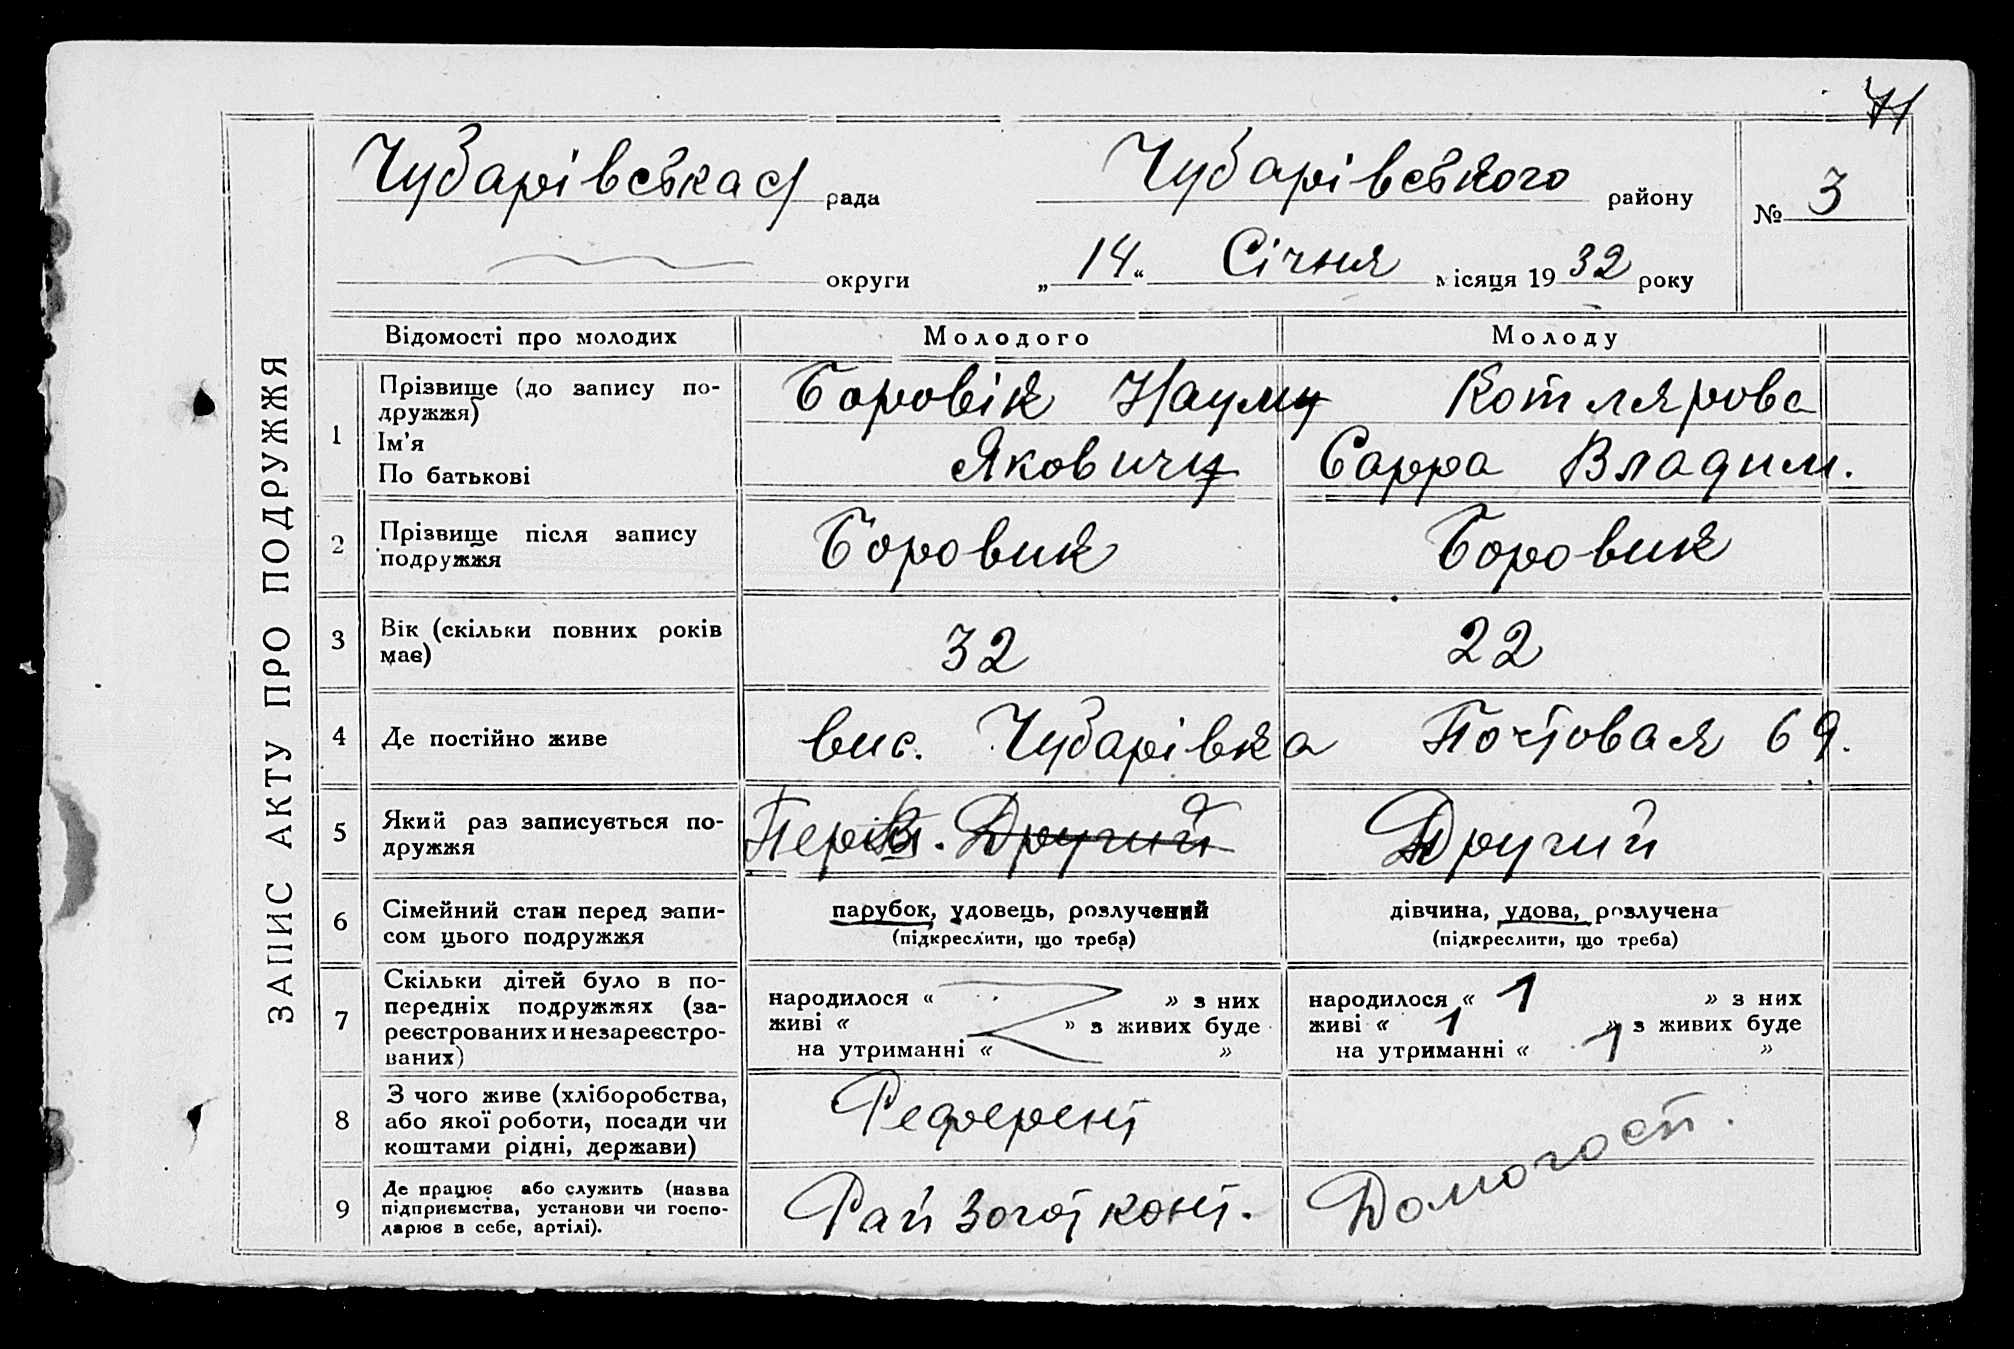 71
Чубарівська с/ рада Чубарівського району № 3
округи „14“ Січня місяця 1932 року
ЗАПИС АКТУ ПРО ПОДРУЖЖЯ
Відомості про молодих Молодого Молоду
1 Прізвище (до запису по-
дружжя)
Ім'я
По батькові
Боровік Науму
Яковичу
Котлярова
Сарра Владим.
2 Прізвище після запису
подружжя
Боровик Боровик
3 Вік (скільки повних років
має)
32 22
4 Де постійно живе вис. Чубарівка Почтовая 69.
5 Який раз записується по-
дружжя
Другий Другий
6 Сімейний стан перед запи-
сом цього подружжя
парубок, удовець, розлучений
(підкреслити, що треба)
дівчина, удова, розлучена
(підкреслити, що треба)
7 Скільки дітей було в по-
передніх подружжях (за-
реєстрованих и незареєстро-
ваних)
народилося « » з них
живі « » з живих буде
на утриманні « »
народилося « 1 » з них
живі « 1 » з живих буде
на утриманні « 1 »
8 З чого живе (хліборобства,
або якої роботи, посади чи
коштами рідні, держави)
Референт
Домогосп.
9 Де працює або служить (назва
підприємства, установи чи госпо-
дарює в себе, артілі).
Рай Зогот конт.